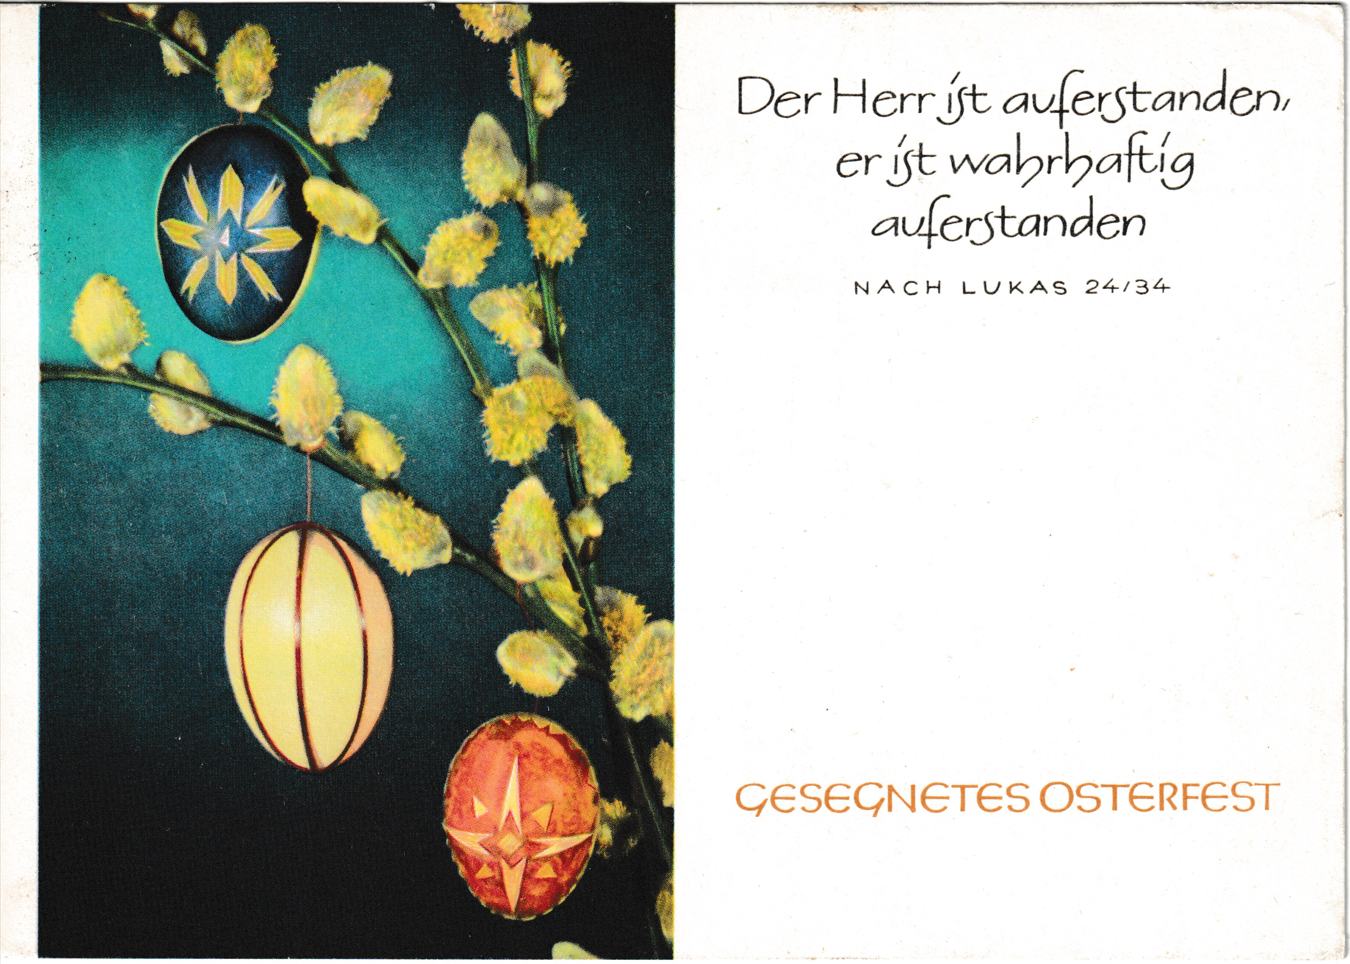 Der Herr ist auferstanden,
er ist wahrhaftig
auferstanden
NACH LUKAS 24/34
GESEGNETES OSTERFEST